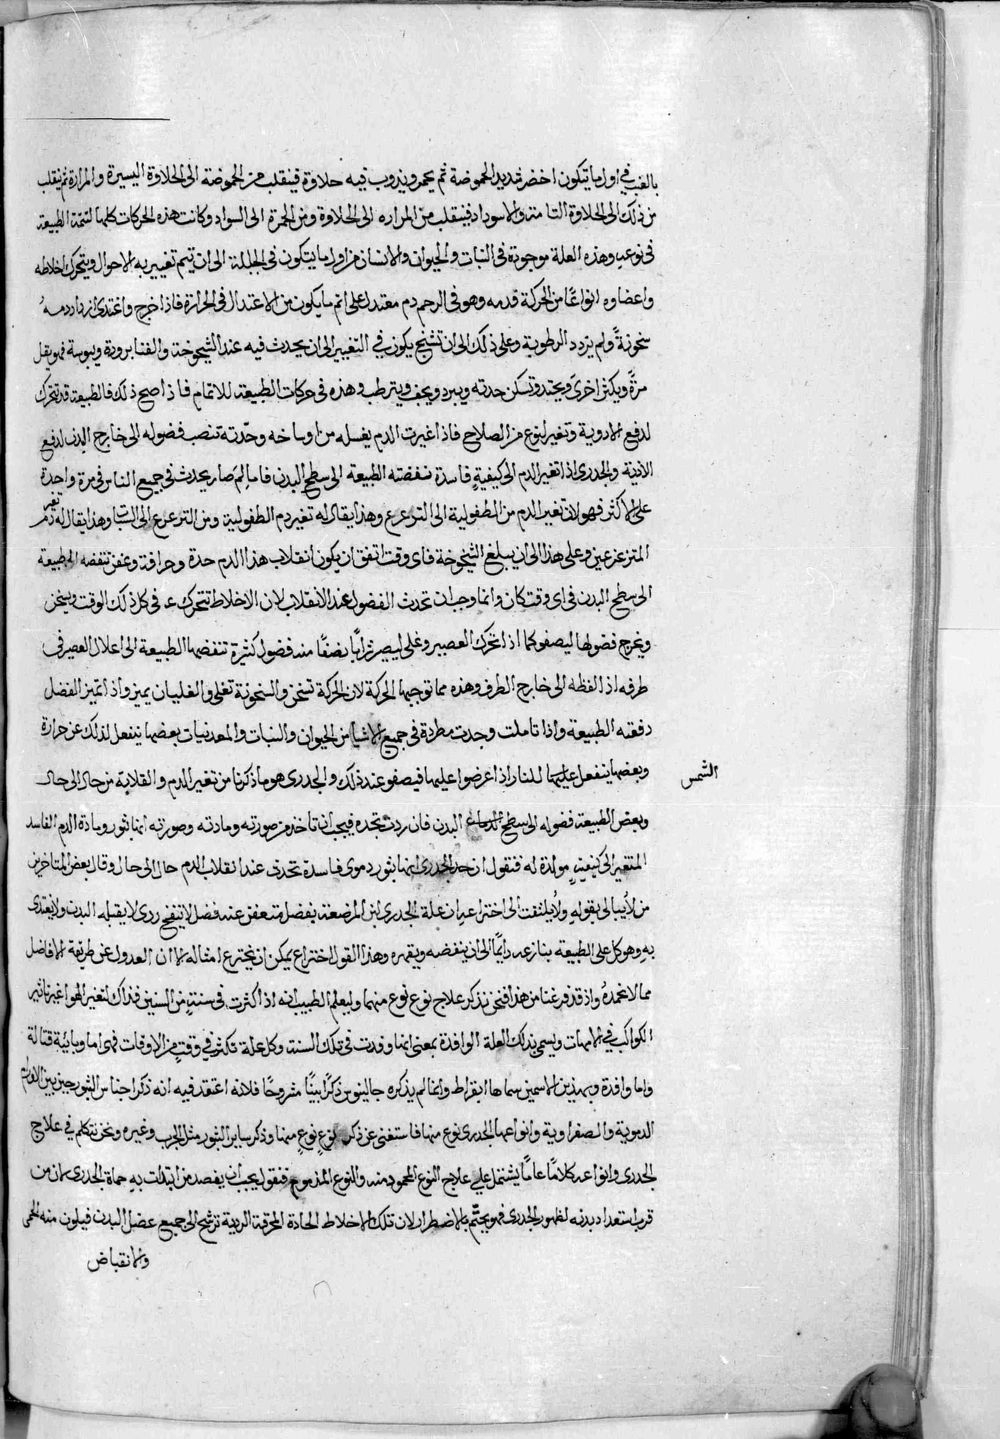 بالعنب في اول ما يتكون اخضر شديد الحموضة ثم يحمر ويذوب فيه حلاوة فينقلب من الحموضة الى الحلاوة اليسيرة والمرارة ثم ينقلب
من ذلك الى الحلاوة التامة والاسوداد فينقلب من المراره الى الحلاوة ومن الحمرة الى السواد وكانت هذه الحركات كلها لتتمة الطبيعة
في نوعه وهذه العلة موجودة في النبات والحيوان والانسان من اول ما يتكون في الجبلة الى ان يتم تغييره الاحوال ويتحرك اخلاطه
واعضاوه انواعًا من الحركة قدمه وهو في الرحم دم معتدل على اتم ما يكون من الاعتدال في الحرارة فاذا خرج واغتدى ازداد دمه
سخونةً ولم يزدد الرطوبة وعلى ذلك الى ان تشيخ يكون في التغيير الى ان يحدث فيه عند الشيخوخة والفنا برودة ويبوسة فهو يقل
مرةً ويكثر اخرى ويحتد وتسكن حدته ويبرد ويجف ويترطب وهذه في حركات الطبيعة للاتمام فاذا صح ذلك فالطبيعة قد تتحرك
لدفع الادوية وتغير لنوع من الصلاح فاذا غيرت الدم يغسله من اوساخه وحدّته تنصب فضوله الى خارج البدن لدفع
الاذية والجدري اذا تغير الدم الى كيفيةٍ فاسدة نفضته الطبيعة الى سطح البدن فاما لم صار يحدث في جميع الناس في مرة واحدة
على الاكثر فهو لان تغير الدم من الطفولية الى الترعرع وهذا يقال له تغير دم الطفولية ومن الترعرع الى الشباب وهذا يقال له تغير دم
المترعرعين وعلى هذا الى ان يبلغ الشيخوخة فاى وقت اتفق ان يكون انقلاب هذا الدم حدة وحرافة وعفن تنفضه الطبيعة
الى سطح البدن في اى وقت كان وانما وجب ان تحدث الفضول عند الانقلاب لان الاخلاط تتحرك في كل ذلك الوقت ويسخن
ويخرج فضولها ليصفو كما اذا تحرك العصير وغلى ليصير شرابًا بصفًا منه فضول كثيرة تنفضها الطبيعة الى اعلا ال العصير في
طرفه اذ الفظه الى خارج الطرف وهذه مما توجبها الحركة لان الحركة تسخن والسخونة تغلى والغليان يميز واذا تميز الفضل
دفعته الطبيعة واذا تاملت وجدت مطردة في جميع الاشيا من الحيوان والنبات والمعدنيات بعضها ينفعل لذلك عن حرارة
الشمس
وبعضها ينفعل للنار اذا عرضوا عليها فيصفو عند ذلك والجدري هو ما ذكرنا من تغير الدم وانقلابه من حال الى حال
وبعض الطبيعة فضوله الى سطح البدن فان ردت تحده فيجب ان تاخذ من صورته ومادته وصورته انها بثور ومادة الدم الفاسد
المتغير الى كيفيةٍ مولدة له فنقول ان حد الجدري انها بثور دموى فاسدة تحدث عند انقلاب الدم حال الى حال وقال بعض المتاخرين
من لا يبالى بقوله ولا يلتفت الى اختراعه ان علة الجدري لبن المرضعة يفضل متعفن عنه فضل لا تنفج ردى لا يقبله البدن ولا يغتدى
به وهو كل على الطبيعه ينازعه دايمًا الى ان ينفضه ويقهره وهذا القول اختراع يمكن ان يخترع امثاله الا ان العدول عن طريقة الافاضل
مما لا نحمده واذ قد فرغنا من هذا فنحن نذكر علاج نوع نوع منها وليعلم الطبيب انه اذا كثرت في سنةٍ من السنين فذاك لتغير الهوا غير تاثير
الكواكب في الامهات ويسمى بذلك العلة الوافدة بمعنى انها وفدت في تلك السنة وكل علة تكثر في وقتٍ من الاوقات فهى اما وبائية قتالة
واما وافدة وبهذين الاسمين سماها ابقراط وانما لم يذكره جالينوس ذكرًا بينًا مشروحًا فلانه اعتقد فيه انه ذكر اجناس البثور حين بين الاورام
الدموية والصفراوية وانواعها الجدري نوع منها فاستغنى عن ذكر نوعٍ نوعٍ منها وذكر ساير البثور مثل الجرب وغيره ونحن نتكلم في علاج
الجدري وانواعه كلامًا عامًا يشتمل على علاج النوع المحمود منه والنوع المذموم فنقول يجب ان يفصد من ابتدات به حماة الجدري بان من
قرب استعداد بدنه لظهور الجدري فهو يحتّم بالاضطرار لان تلك الاخلاط الحادة المحرقة الردية ترشح الى جميع عضل البدن فيلون منه الحمى
والانقباض